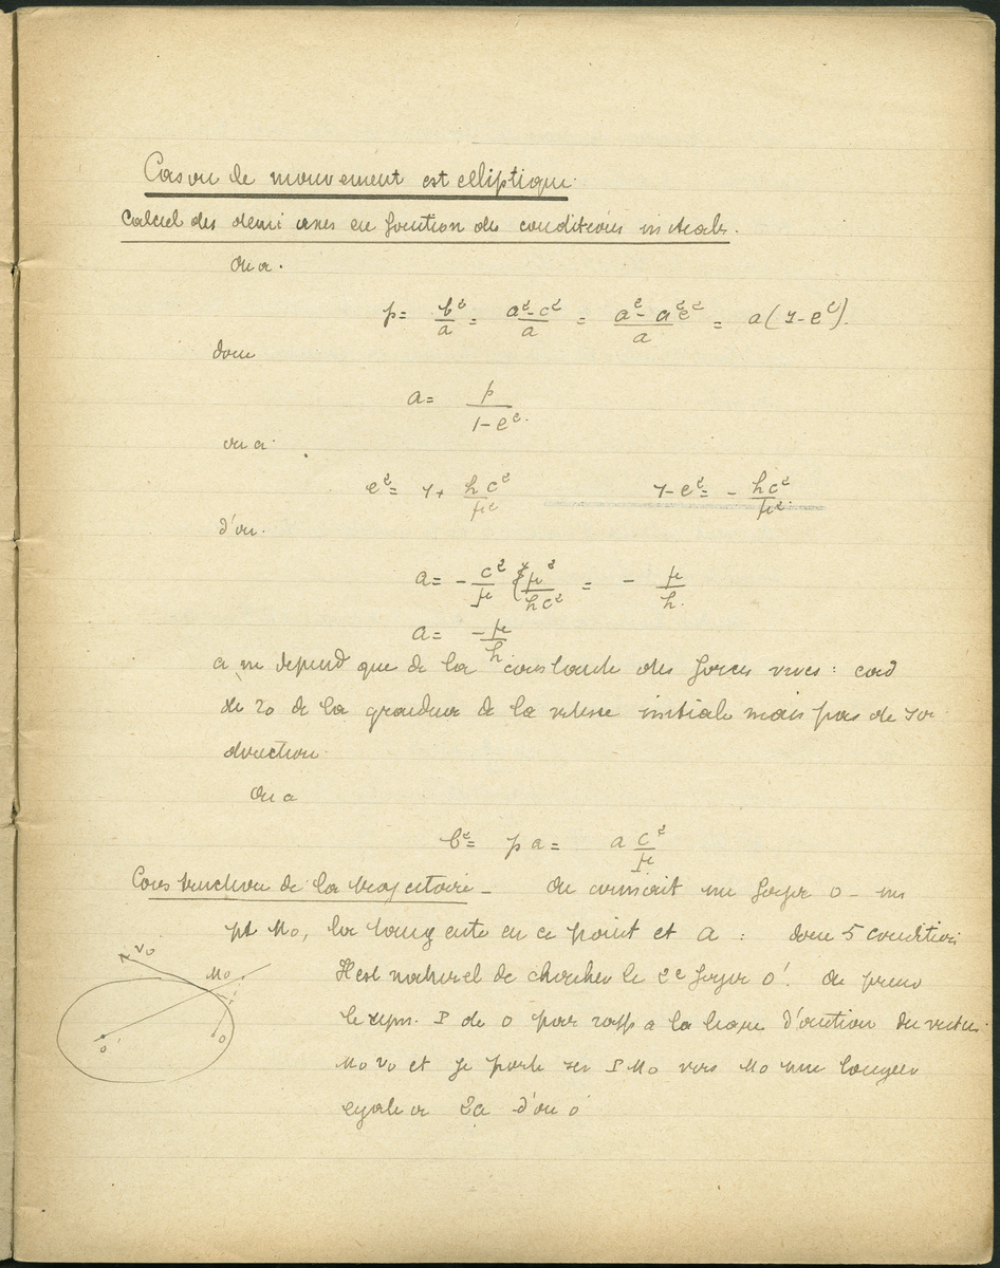 Cas ou le mouvement est elliptique.
Calcul des demi axes en fonction des conditions initiales.
On a.
p = b²/a = a²-c²/a = a²-a²e²/a = a(1-e²).
donc
a = p/1-e².
on a.
e² = 1+ hc²/μ² 1-e² = - hc²/μ².
d'ou.
a = - c²/μ μ²/hc² = - μ/h.
a = -μ/h
a ne depend que de la constante des forces vives : cad
de r0 de la grandeur de la vitesse initiale mais pas de sa
direction.
On a
b² = pa = a c²/μ
Construction de la trajectoire - On connait un foyer O - un
pt M0, la tangente en ce point et a : donc 5 conditions
V0
M0
Il est naturel de chercher le 2e foyer O'. On prend
le sym. S de O par rapp a la ligne d'action du vecteur
M0 V0 et je porte sur S M0 vers M0 une longueur
egale a 2a d'ou O'
O'
O